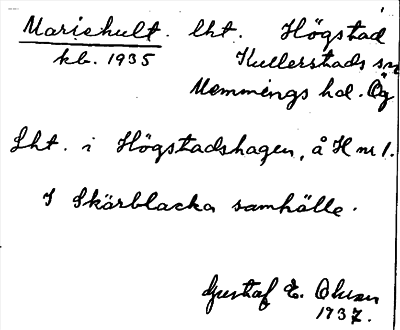 Mariehult. lht. Högstad
kb. 1935 Kullerstads sn
Memmings hd. Ög
Lht. i Högstadshagen, å H nr 1.
I Skärblacka samhälle.
Gustaf E. Ohlson
1937.